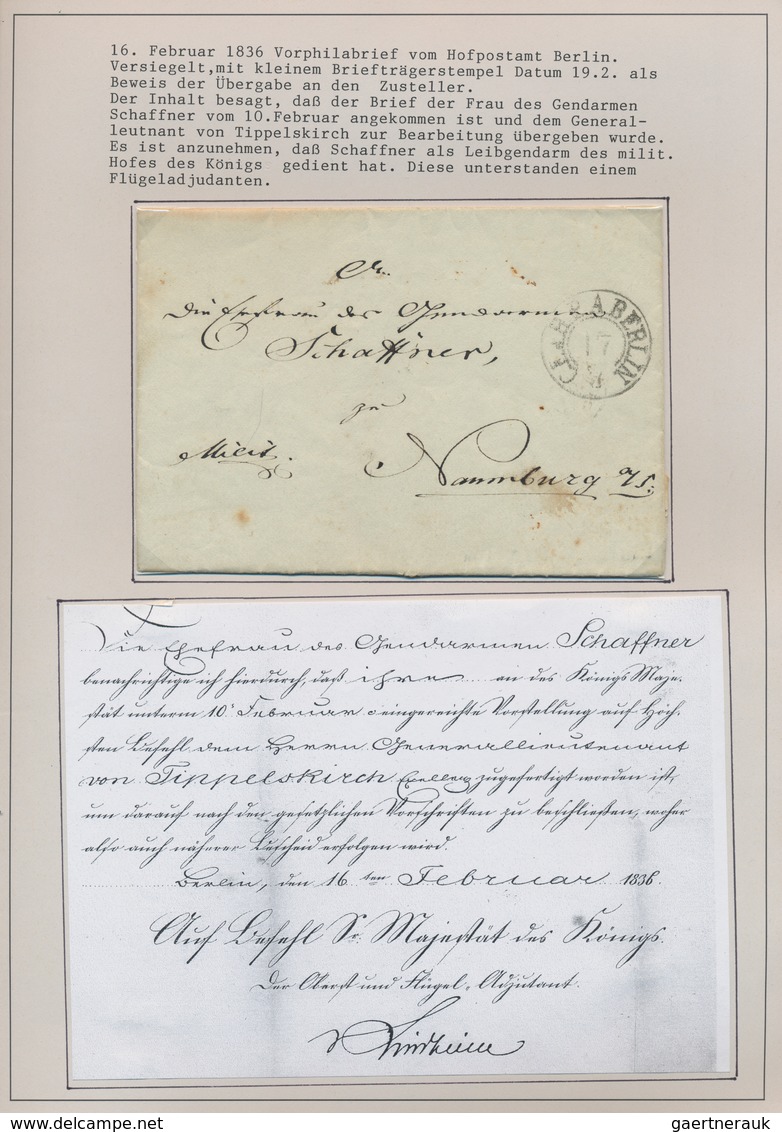 16. Februar 1836 Vorphilabrief vom Hofpostamt Berlin.
Versiegelt,mit kleinem Briefträgerstempel Datum 19.2. als
Beweis der Übergabe an den Zusteller.
Der Inhalt besagt, daß der Brief der Frau des Gendarmen
Schaffner vom 10.Februar angekommen ist und dem General-
leutnant von Tippelskirch zur Bearbeitung übergeben wurde.
Es ist anzunehmen, daß Schaffner als Leibgendarm des milit.
Hofes des Königs gedient hat. Diese unterstanden einem
Flügeladjudanten.
An
die Ehefrau des Gendarmen
Schaffner,
zu
Milit.
Naumburg a/S.
BERLIN
17
Die Ehefrau des Gendarmen Schaffner
benachrichtige ich hierdurch, daß ihre an des Königs Maje-
stät unterm 10. Februar eingereichte Vorstellung auf Höch-
sten Befehl dem Herrn Generallieutenant
von Tippelskirch Excellenz zugefertigt worden ist,
um darauf nach den gesetzlichen Vorschriften zu beschließen, woher
also auch näherer Bescheid erfolgen wird.
Berlin, den 16ten Februar 1836.
Auf Befehl Sr. Majestät des Königs.
Der Oberst und Flügel-Adjutant.
Lindheim
gaertnerauk